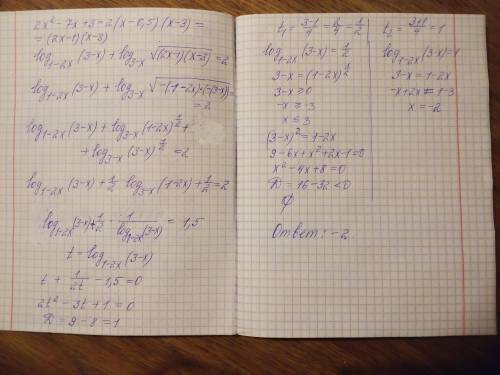 2x² - 7x + 3 = 2(x - 0,5)(x - 3) =
= (2x-1)(x-3)
log₁₋₂ₓ(3-x) + log₃₋ₓ √((2x-1)(x-3)) = 2
log₁₋₂ₓ(3-x) + log₃₋ₓ √(-(1-2x)·(-(3-x))) =
= 2
log₁₋₂ₓ(3-x) + log₃₋ₓ(1-2x)^½ +
+ log₃₋ₓ(3-x)^½ = 2
log₁₋₂ₓ(3-x) + ½ log₃₋ₓ(1-2x) + ½ = 2
log₁₋₂ₓ(3-x) + ½ · 1/log₁₋₂ₓ(3-x) = 1,5
t = log₁₋₂ₓ(3-x)
t + 1/2t - 1,5 = 0
2t² - 3t + 1 = 0
D = 9 - 8 = 1
t₁ = (3-1)/4 = 2/4 = 1/2
log₁₋₂ₓ(3-x) = ½
3-x = (1-2x)^½
3-x ≥ 0
-x ≥ -3
x ≤ 3
(3-x)² = 1-2x
9 - 6x + x² + 2x - 1 = 0
x² - 4x + 8 = 0
D = 16 - 32 < 0
∅
t₂ = (3+1)/4 = 1
log₁₋₂ₓ(3-x) = 1
3-x = 1-2x
-x + 2x = 1-3
x = -2
Ответ: -2